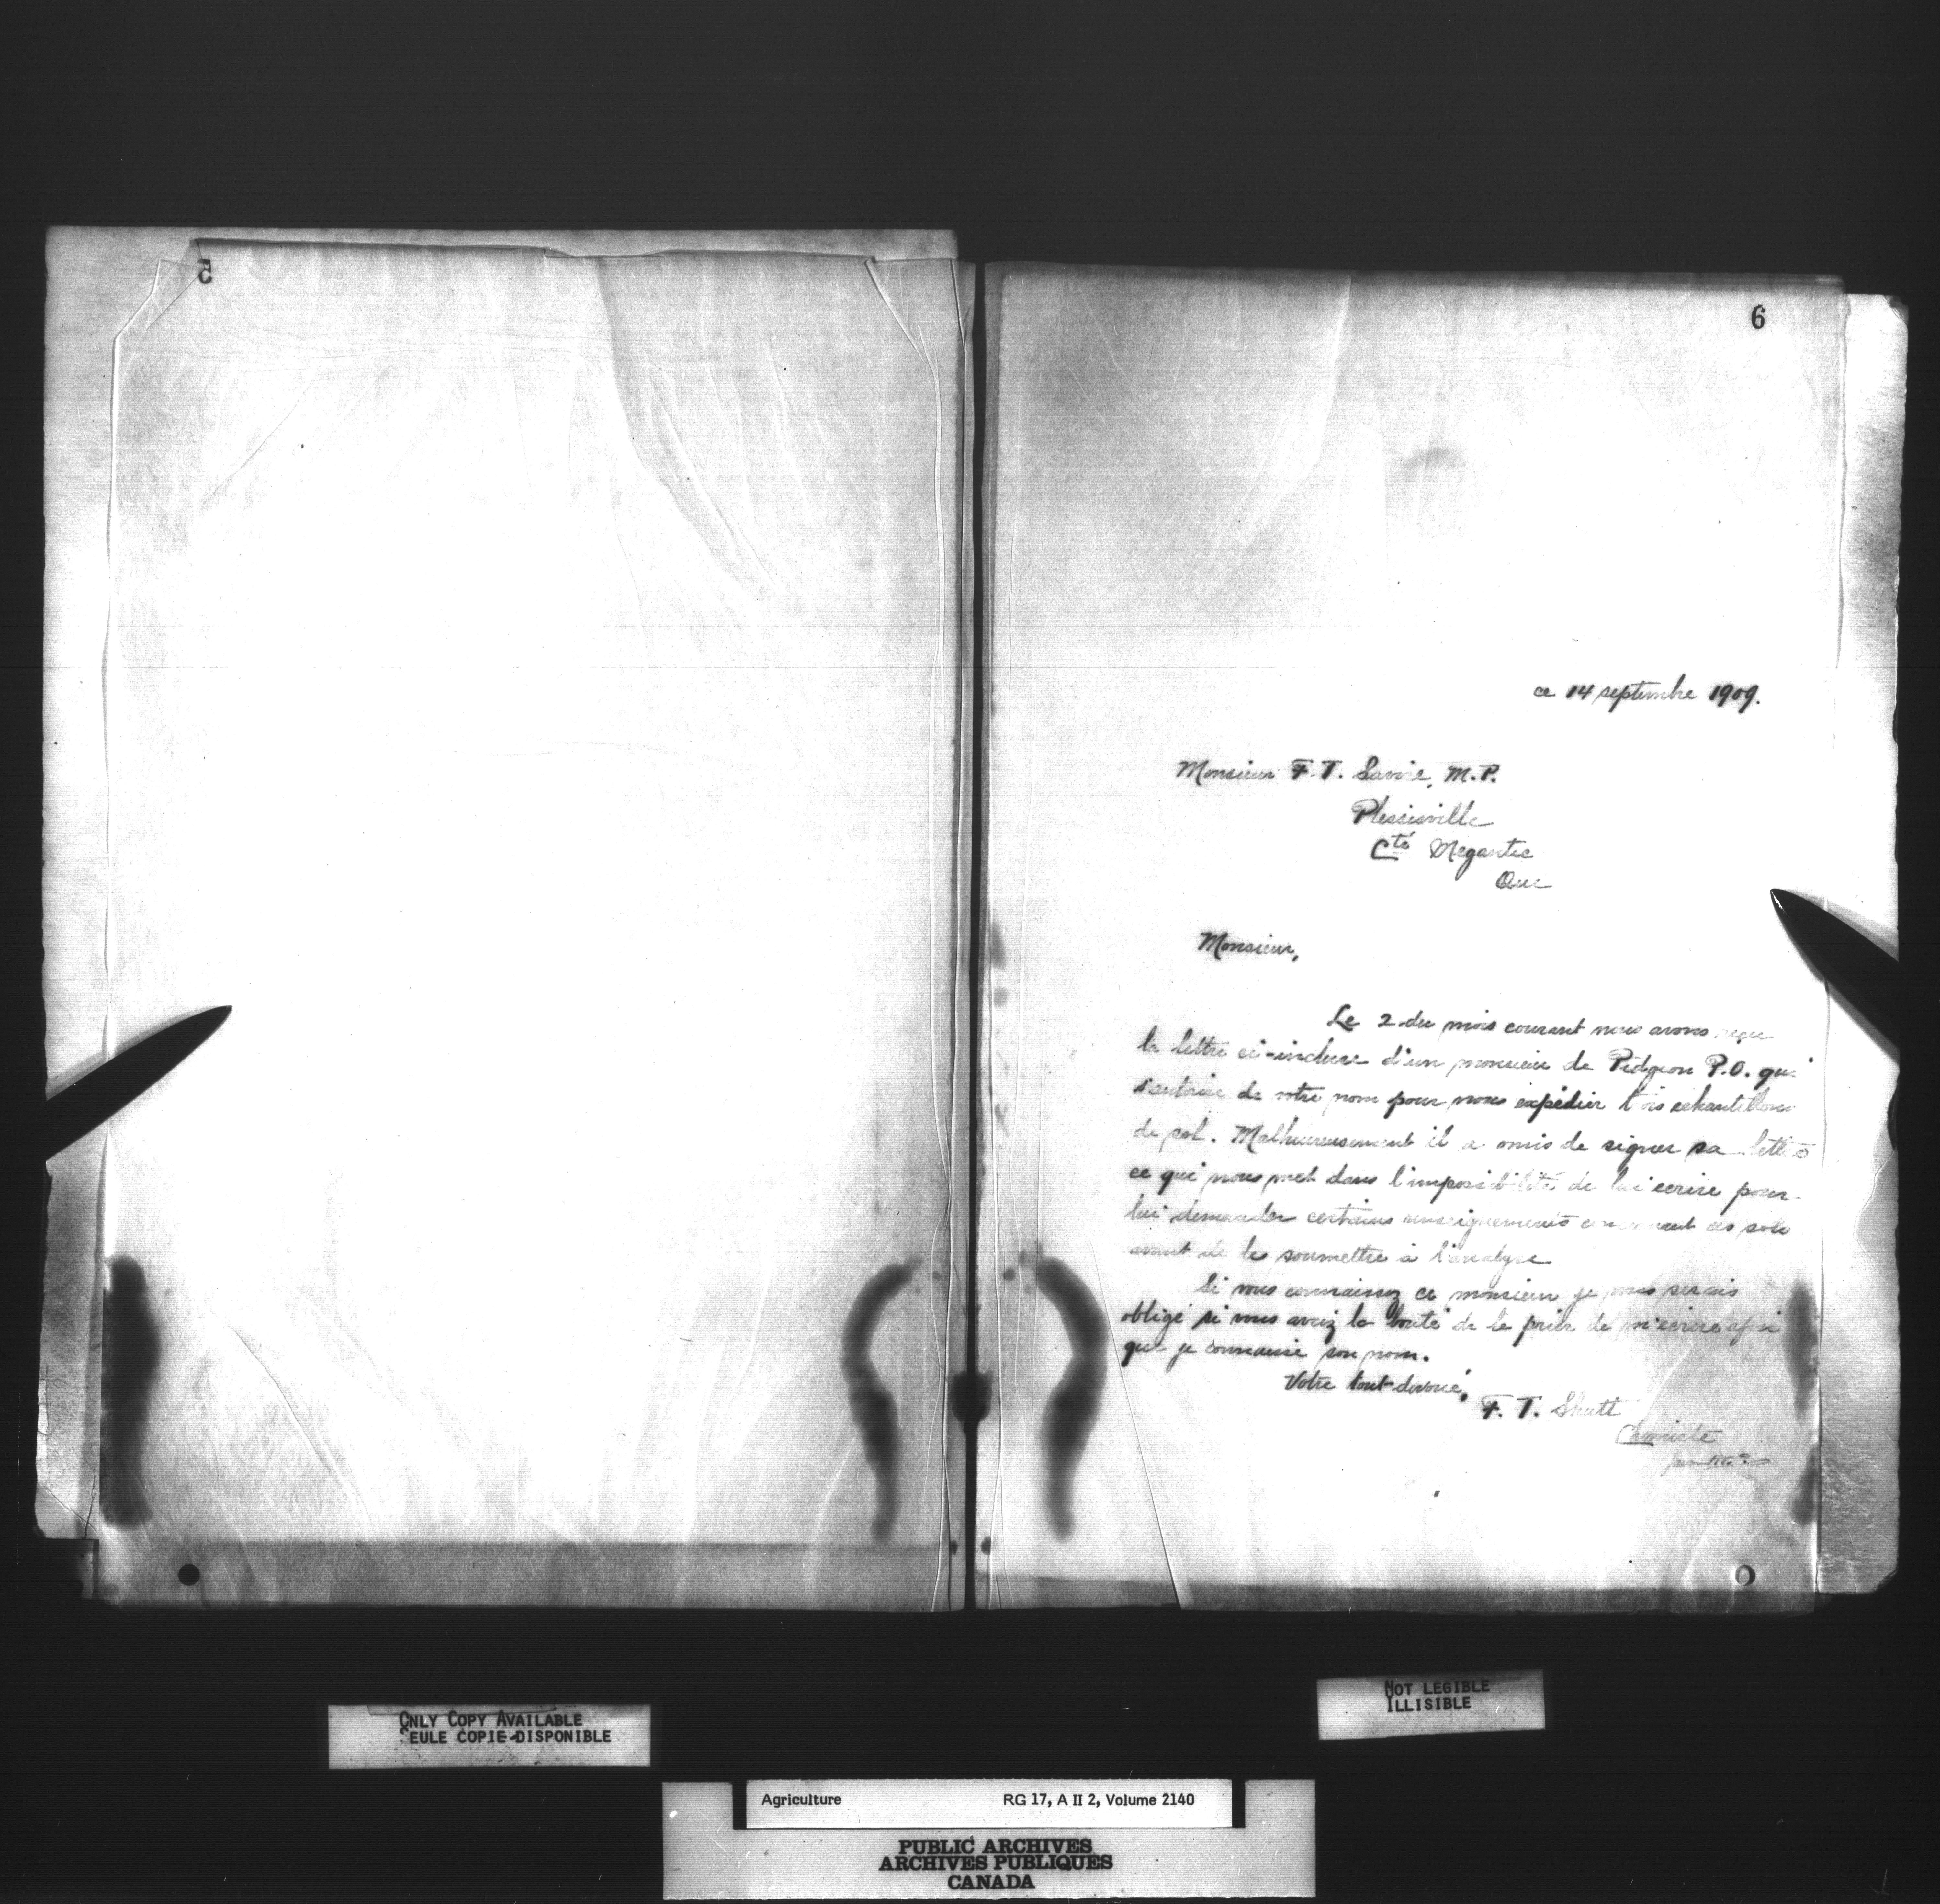 5
6
ce 14 septembre 1909.
Monsieur F. T. Savoie, M.P.
Plessisville
Cté Megantic
Que
Monsieur,
Le 2 du mois courant nous avons reçu
la lettre ci-incluse d'un monsieur de Pidgeon P.O. qui
s'autorise de votre nom pour nous expédier trois echantillons
de sol. Malheureusement il a omis de signer sa lettre
ce qui nous met dans l'impossibilité de lui ecrire pour
lui demander certains renseignements concernant ces sols
avant de les soumettre à l'analyse
Si vous connaissez ce monsieur je vous serais
obligé si vous aviez la bonté de le prier de m'ecrire afin
que je connaisse son nom.
Votre tout devoué,
F. T. Shutt
Chimiste
ONLY COPY AVAILABLE
SEULE COPIE DISPONIBLE
NOT LEGIBLE
ILLISIBLE
Agriculture RG 17, A II 2, Volume 2140
PUBLIC ARCHIVES
ARCHIVES PUBLIQUES
CANADA